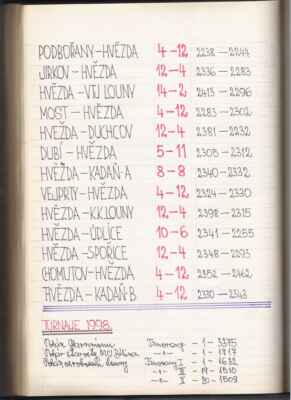 PODBOŘANY – HVĚZDA 4 – 12 2238 – 2244
JIRKOV – HVĚZDA 12 – 4 2336 – 2283
HVĚZDA – VTJ LOUNY 14 – 2 2413 – 2296
MOST – HVĚZDA 4 – 12 2283 – 2302
HVĚZDA – DUCHCOV 12 – 4 2381 – 2232
DUBÍ – HVĚZDA 5 – 11 2305 – 2312
HVĚZDA – KADAŇ – A 8 – 8 2340 – 2332
VEJPRTY – HVĚZDA 4 – 12 2324 – 2330
HVĚZDA – K.K. LOUNY 12 – 4 2398 – 2315
HVĚZDA – ÚDLICE 10 – 6 2341 – 2255
HVĚZDA – SPOŘICE 12 – 4 2348 – 2293
CHOMUTOV – HVĚZDA 4 – 12 2452 – 2462
HVĚZDA – KADAŇ B. 4 – 12 2330 – 2343
TURNAJE 1998.
– 1 –
– „ – – 1 –
– 1 – 1632
II – 19 – 1510
– „ – III – 20 – 1509